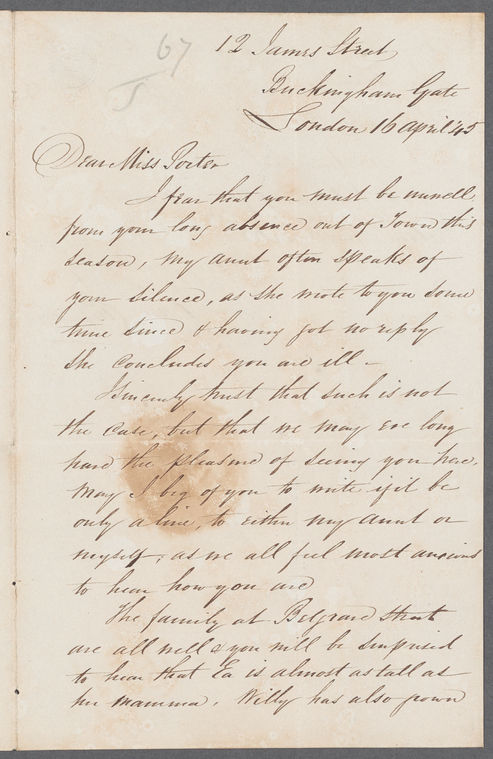 67
J
12 James Street
Buckingham Gate
London 16 April 45
Dear Miss Porter
I fear that you must be unwell
from your long absence out of Town this
season, my aunt often speaks of
your silence, as she wrote to you some
time since & having got no reply
she concludes you are ill -
I sincerely trust that such is not
the case, but that we may ere long
have the pleasure of seeing you here,
may I beg of you to write if it be
only a line, to either my aunt or
myself, as we all feel most anxious
to hear how you are
The family at Belgrave Street
are all well & you will be surprised
to hear that Ea is almost as tall as
her mamma. Willy has also grown